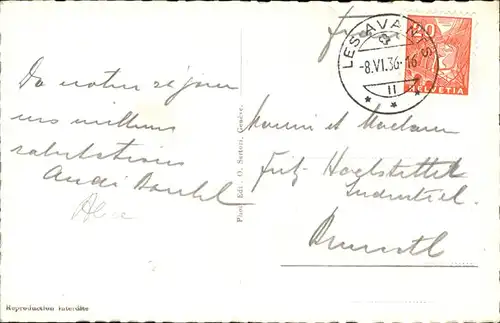 LES AVANTS
-8.VI.36-16
II
20
HELVETIA
De notre séjour
nos milleurs
salutations
Alice
Phot. Edit. O. Sartori, Genève.
Monsieur et Madame
Fritz Hochstettler
Industriel
Reproduction interdite